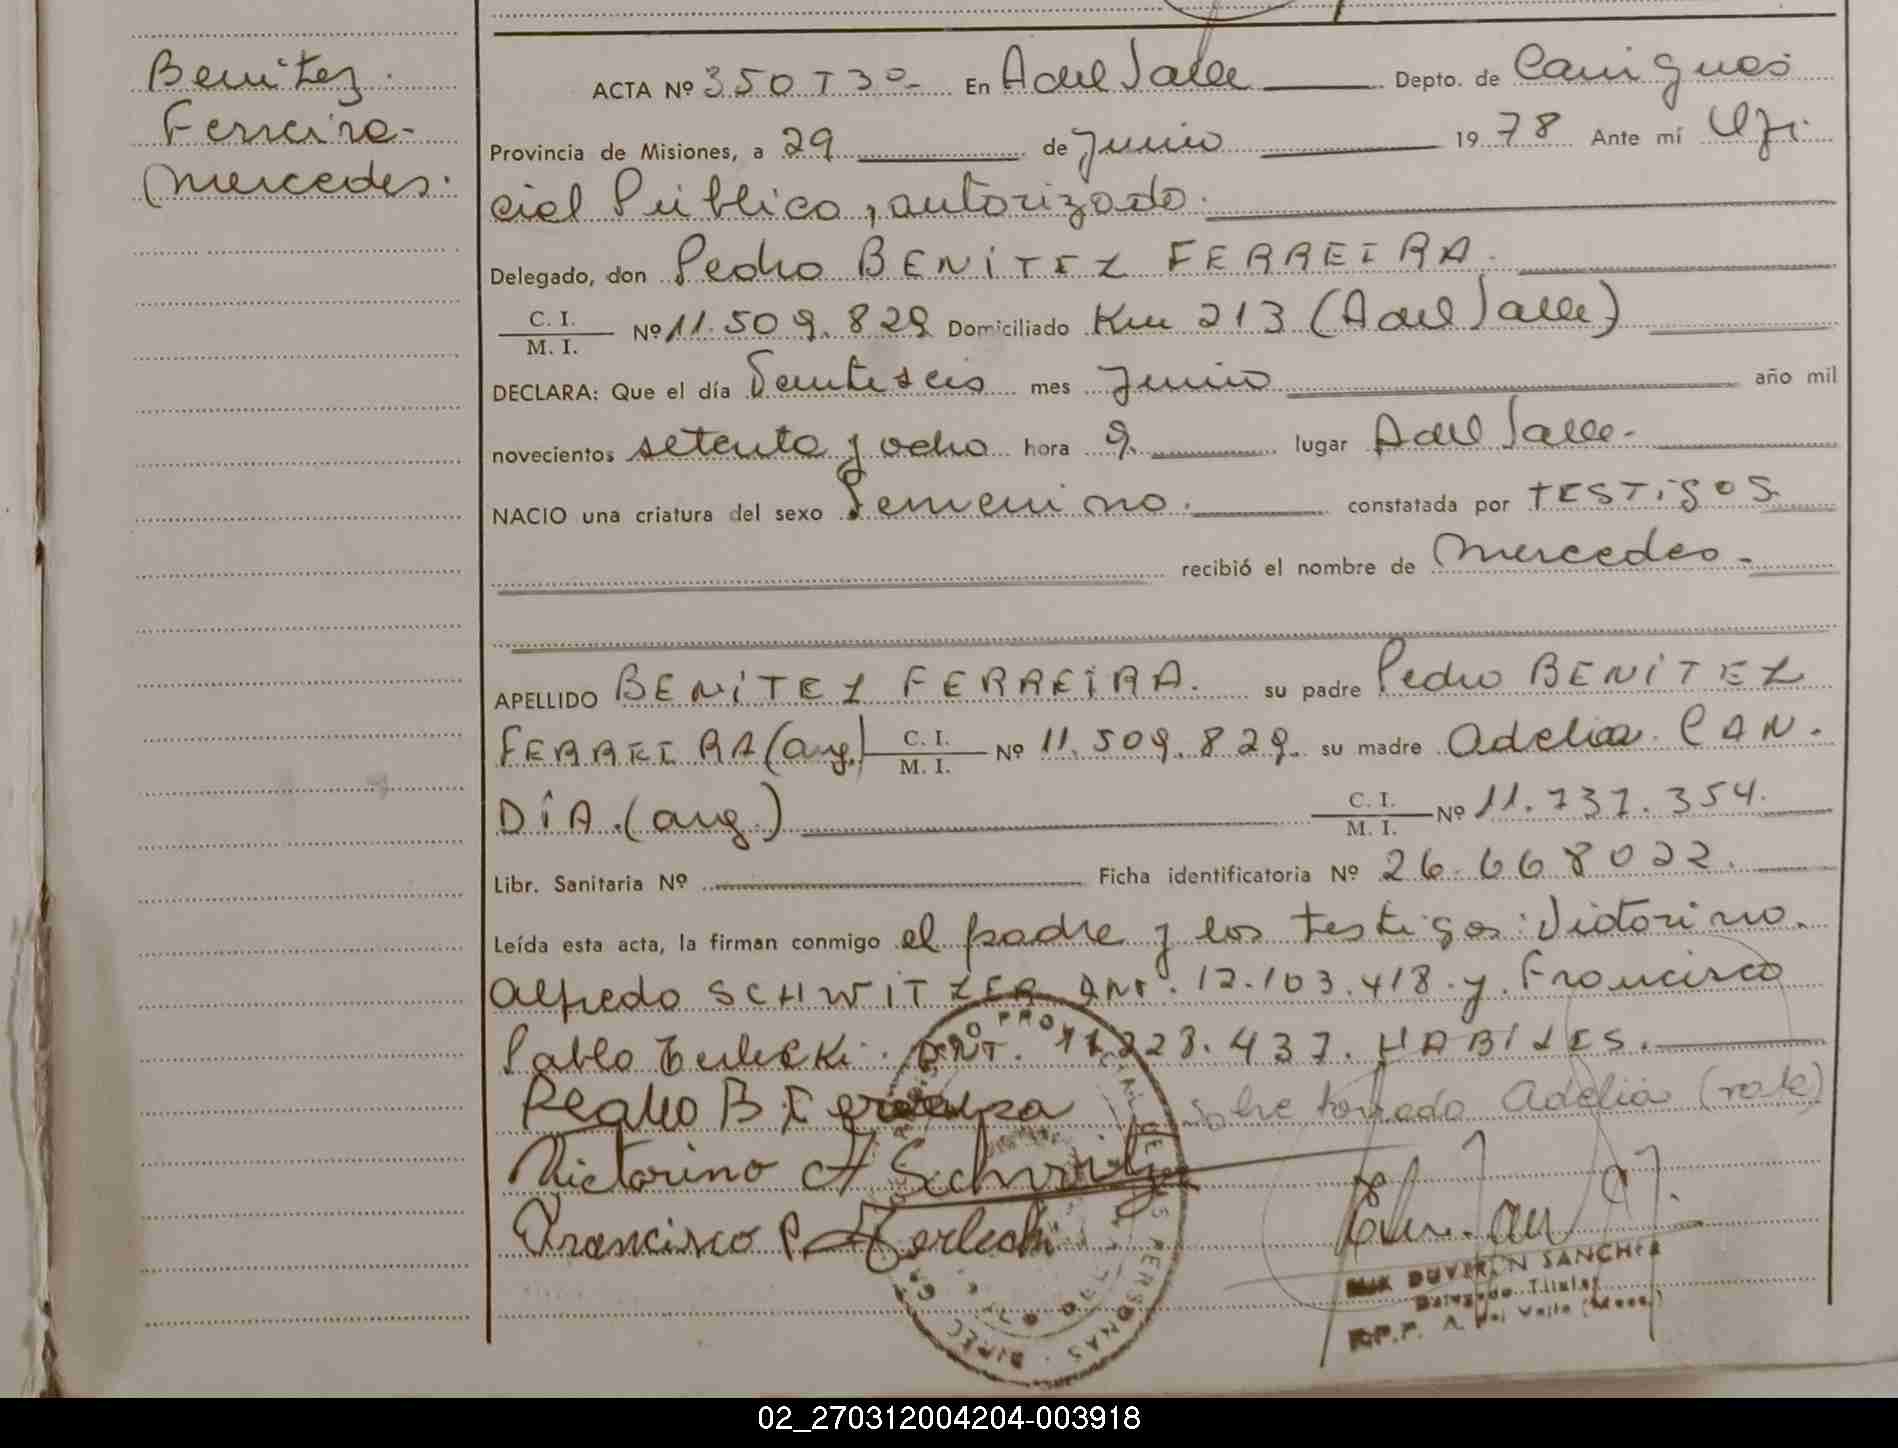 Benitez
Ferreira-
Mercedes.
ACTA Nº 350 T 3º- En A del Valle Depto. de Cainguas
Provincia de Misiones, a 29 de Junio 19 78 Ante mí Ofi
cial Público, autorizado.
Delegado, don Pedro BENÍTEZ FERREIRA.
C. I.
M. I.
Nº 11.509.829 Domiciliado Km 213 (A del Valle)
DECLARA: Que el día Veintiseis mes Junio año mil
novecientos setenta y ocho hora 9. lugar A del Valle-
NACIO una criatura del sexo Femenino. constatada por TESTIGOS
recibió el nombre de Mercedes-
APELLIDO BENÍTEZ FERREIRA. su padre Pedro BENÍTEZ
FERREIRA (arg.) C. I.
M. I.
Nº 11.509.829. su madre Adelia CAN.
DÍA.(arg.) C. I.
M. I.
Nº 11.737.354.
Libr. Sanitaria Nº Ficha identificatoria Nº 26.668022.
Leída esta acta, la firman conmigo el padre y los testigos: Victorino.
Alfredo SCHWITZER DNI. 12.103.418. y. Francisco
Pablo DNI. 11.228.437. HABILES.
Pedro B. sobre borrado Adelia (vale)
Victorino A
Francisco P.
DUVERLN SANCHEZ
Delegado Titular
R.P.P. A. del Valle (Mnes.)
REGISTRO PROVINCIAL DE LAS PERSONAS
02_270312004204-003918